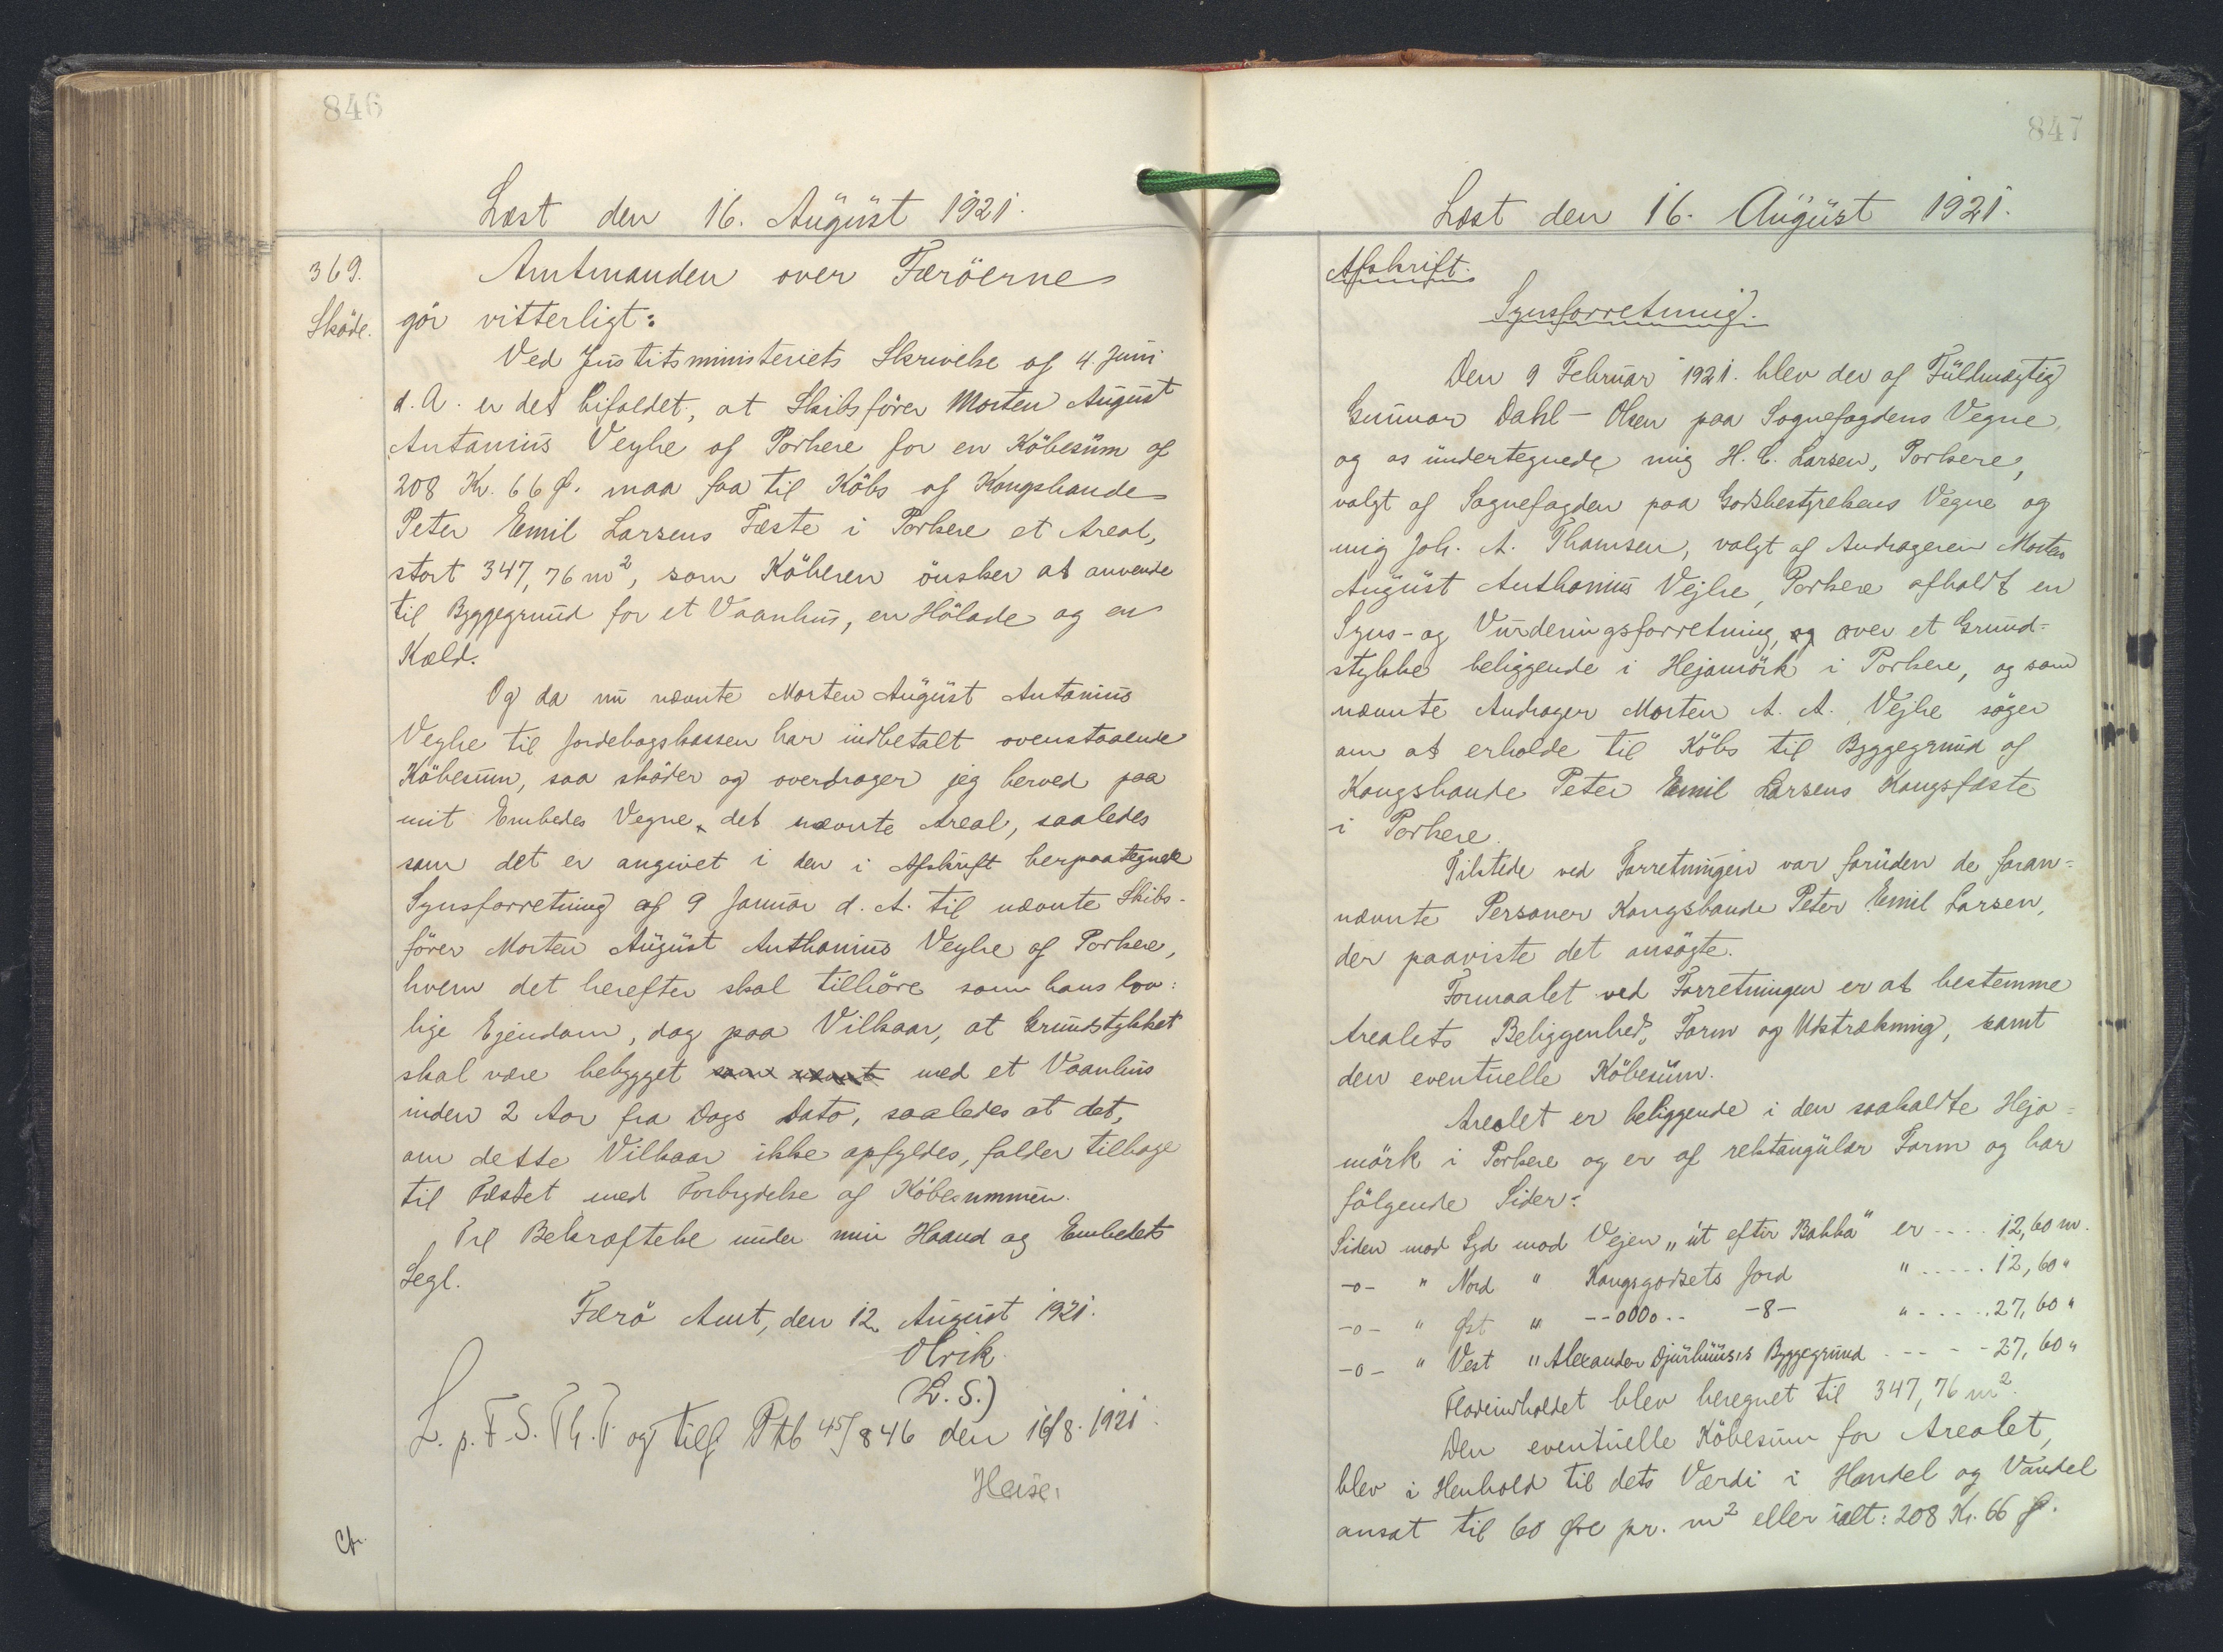 846
Læst den 16. August 1921.
369.
Sköde.
Amtmanden over Færöerne
gör vitterligt:
Ved Justitsministeriets Skrivelse af 4 Juni
d. A. er det bifaldet, at Skibsförer Morten August
Antanius Veyhe af Porkere for en Köbesum af
208 Kr. 66 Ø. maa faa til Köbs af Kongsbonde
Peter Emil Larsens Fæste i Porkere et Areal,
stort 347,76 m², som Köberen önsker at anvende
til Byggegrund for et Vaanhus, en Hölade og en
Kæld.
Og da nu nævnte Morten August Antanius
Veyhe til Jordebogskassen har indbetalt ovenstaaende
Köbesum, saa sköder og overdrager jeg herved paa
mit Embedes Vegne det nævnte Areal, saaledes
som det er angivet i den i Afskrift herpaategnede
Synsforretning af 9 Januar d. A. til nævnte Skibs-
förer Morten August Anthonius Veyhe af Porkere,
hvem det herefter skal tilhöre som hans lov:
lige Ejendom, dog paa Vilkaar, at Grundstykket
skal være bebygget som nævnt med et Vaanhus
inden 2 Aar fra Dags Dato, saaledes at det,
om dette Vilkaar ikke opfyldes, falder tilbage
til Fæstet med Forbrydelse af Köbesummen.
Til Bekræftelse under min Haand og Embedets
Segl.
Færö Amt, den 12. August 1921.
Olrik
(L.S.)
L. p. F. S. Th. T. og tilf Ptb 45/846 den 16/8. 1921.
Heise
Cfr.
847
Læst den 16. August 1921.
Afskrift.
Synsforretning.
Den 9 Februar 1921. blev der af Fuldmægtig
Gunnar Dahl-Olsen paa Sognefogdens Vegne,
og os undertegnede mig H. C. Larsen, Porkere,
valgt af Sognefogden paa Godsbestyrelsens Vegne og
mig Joh. A. Thomsen, valgt af Andrageren Morten
August Anthonius Vejhe, Porkere afholdt en
Syns- og Vurderingsforretning, og over et Grund=
stykke beliggende i Hejamörk i Porkere, og som
nævnte Andrager Morten A. A. Vejhe söger
om at erholde til Köbs til Byggegrund af
Kongsbonde Peter Emil Larsens Kongsfæste
i Porkere.
Tilstede ved Forretningen var foruden de foran=
nævnte Personer Kongsbonde Peter Emil Larsen,
der paaviste det ansögte.
Formaalet ved Forretningen er at bestemme
Arealets Beliggenhed, Form og Udstrækning, samt
den eventuelle Köbesum.
Arealet er beliggende i den saakaldte Heja=
mörk i Porkere og er af rektangulær Form og har
fölgende Sider:
Siden mod Syd mod Vejen „út eftir Bakka" er .... 12,60 m.
-o- " Nord " Kongsgodsets Jord " ..... 12,60 "
-o- " Øst " --oOOo-- -8- " ..... 27,60 "
-o- " Vest " Alexander Djurhuus's Byggegrund ---- 27,60 "
Fladeindholdet blev beregnet til 347,76 m².
Den eventuelle Köbesum for Arealet,
blev i Henhold til dets Værdi i Handel og Vandel
ansat til 60 Øre pr. m² eller ialt: 208 Kr. 66 Ø.